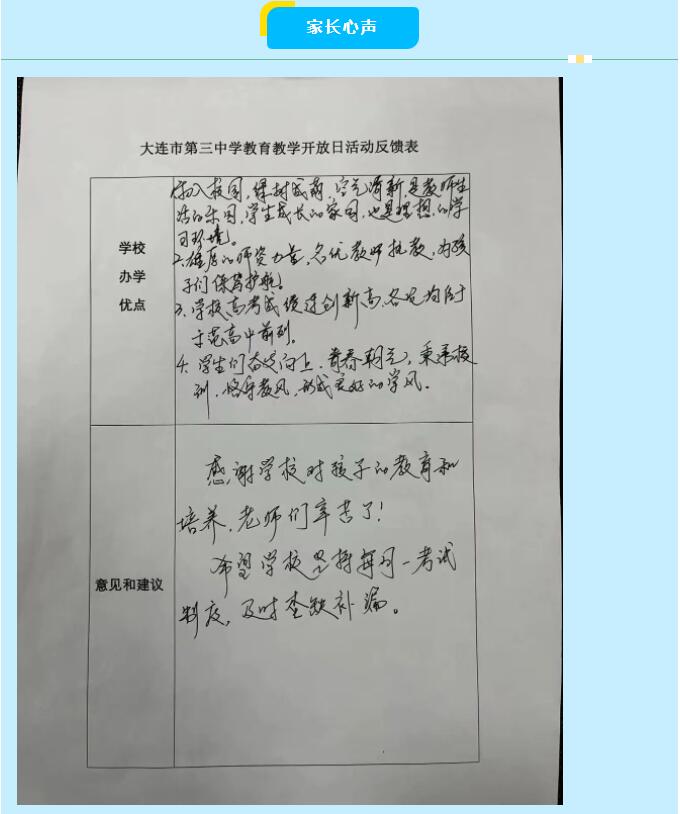 家长心声
大连市第三中学教育教学开放日活动反馈表
学校
办学
优点
1.初入校园,绿树成荫,空气清新是教师生
活的乐园,学生成长的家园,也是理想的学
习环境。
2.雄厚的师资力量,名优教师执教,为孩
子们保驾护航!
3.学校高考成绩连创新高,各项均居于
示范高中前列。
4.学生们奋发向上,青春朝气,秉承校
训,恪守教风,形成良好的学风。
意见和建议
感谢学校对孩子的教育和
培养,老师们辛苦了!
希望学校坚持每周一考试
制度,及时查缺补漏。